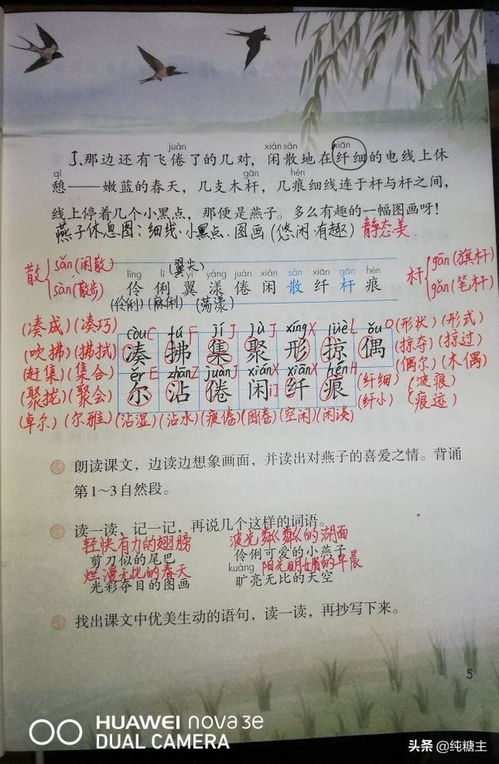 juàn xián sǎn xiān
5.那边还有飞倦了的几对，闲散地在纤细的电线上休
qì gān hén
憩——嫩蓝的春天，几支木杆，几痕细线连于杆与杆之间，
线上停着几个小黑点，那便是燕子。多么有趣的一幅图画呀！
燕子休息图：细线·小黑点·图画(悠闲有趣) 静态美
散 sǎn(闲散) sàn(散步)
(翼尖)
杆 gān(旗杆) gǎn(笔杆)
líng lì yì yàng juàn xián sǎn xiān gān hén
伶 俐 翼 漾 倦 闲 散 纤 杆 痕
(伶俐) (荡漾)
còu C fú F jí J jù J xíng X lüè L ǒu O
(凑成)(凑巧) 凑 拂 集 聚 形 掠 偶 (形状)(形式)
(吹拂)(拂拭) (掠夺)(掠过)
(赶集)(集合) ěr E zhān Z juàn J xián X xiān X hén H (偶尔)(木偶)
(聚拢)(聚会) 尔 沾 倦 闲 纤 痕 (纤细)(波痕)
(卓尔)(尔雅)(沾湿)(沾水)(疲倦)(困倦)(空闲)(闲谈) (纤小)(痕迹)
朗读课文，边读边想象画面，并读出对燕子的喜爱之情。背诵
第1~3自然段。
读一读，记一记，再说几个这样的词语。
轻快有力的翅膀 波光粼粼的湖面
剪刀似的尾巴 伶俐可爱的小燕子
烂漫无忧的春天 kuàng 阳光明媚的早晨
光彩夺目的图画 旷亮无比的天空
找出课文中优美生动的语句，读一读，再抄写下来。
5
HUAWEI nova 3e
DUAL CAMERA
头条 @纯糖主